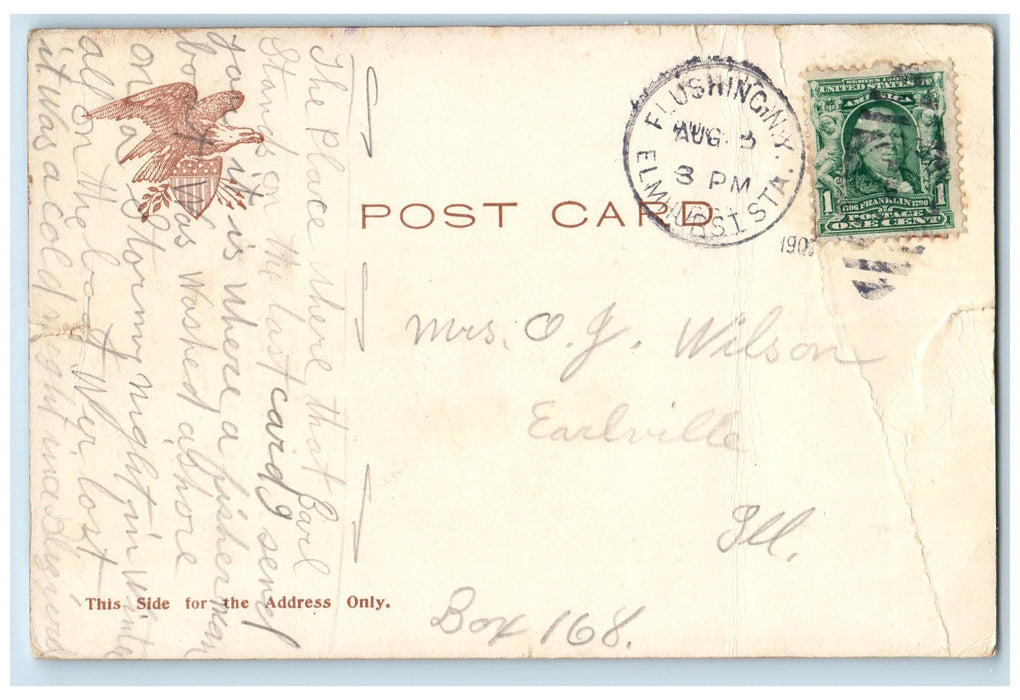 POST CARD
FLUSHING, N.Y.
AUG. 3
3 PM
ELMHURST STA.
190
SERIES 1902
UNITED STATES OF
AMERICA
1706 FRANKLIN 1790
1 POSTAGE 1
ONE CENT
Mrs. O. J. Wilson
Earlville
Ill.
Box 168.
This Side for the Address Only.
The Place where that Carl
Stands on the last card I sent
you it is where a fisherman
boat was Washed ashore
on a Storming night in Winter
all on the boat Wer lost
it was a cold night